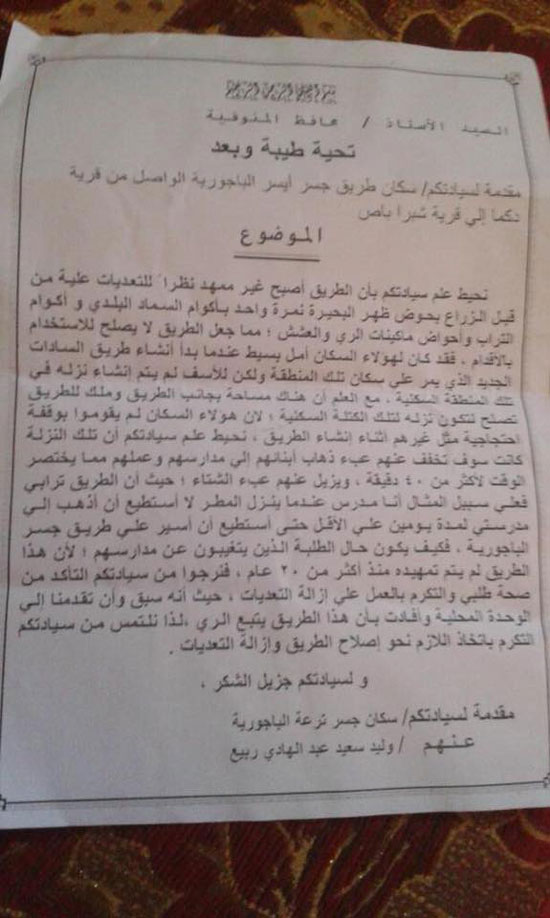 بسم الله الرحمن الرحيم
السيد الأستاذ / محافظ المنوفية
تحية طيبة وبعد
مقدمة لسيادتكم/ سكان طريق جسر أيسر الباجورية الواصل من قرية
دكما إلي قرية شبرا باص
الموضوع
نحيط علم سيادتكم بأن الطريق أصبح غير ممهد نظراً للتعديات علية من
قبل الزراع بحوض ظهر البحيرة نمرة واحد بأكوام السماد البلدي و أكوام
التراب وأحواض ماكينات الري والعشش ؛ مما جعل الطريق لا يصلح للاستخدام
بالاقدام ، فقد كان لهولاء السكان أمل بسيط عندما بدأ أنشاء طريق السادات
الجديد الذي يمر على سكان تلك المنطقة ولكن للأسف لم يتم إنشاء نزله في
تلك المنطقة السكنية ، مع العلم أن هناك مساحة بجانب الطريق وملك للطريق
تصلح لتكون نزله لتلك الكتلة السكنية ؛ لان هولاء السكان لم يقوموا بوقفة
احتجاجية مثل غيرهم أثناء إنشاء الطريق ، نحيط علم سيادتكم أن تلك النزلة
كانت سوف تخفف عنهم عبء ذهاب أبنائهم إلي مدارسهم وعملهم مما يختصر
الوقت لاكثر من ٤٠ دقيقة ، ويزيل عنهم عبء الشتاء ؛ حيث أن الطريق ترابي
فعلي سبيل المثال أنا مدرس عندما ينزل المطر لا أستطيع أن أذهب إلي
مدرستي لمدة يومين علي الأقل حتى أستطيع أن أسير علي طريق جسر
الباجورية ، فكيف يكون حال الطلبة الذين يتغيبون عن مدارسهم ؛ لأن هذا
الطريق لم يتم تمهيده منذ أكثر من ٢٠ عام ، فنرجوا من سيادتكم التأكد من
صحة طلبي والتكرم بالعمل علي ازالة التعديات ، حيث أنه سبق وأن تقدمنا إلي
الوحدة المحلية وأفادت بأن هذا الطريق يتبع الري ،لذا نلتمس من سيادتكم
التكرم باتخاذ اللازم نحو إصلاح الطريق وإزالة التعديات .
و لسيادتكم جزيل الشكر ،
مقدمة لسيادتكم/ سكان جسر ترعة الباجورية
عنهم / وليد سعيد عبد الهادي ربيع